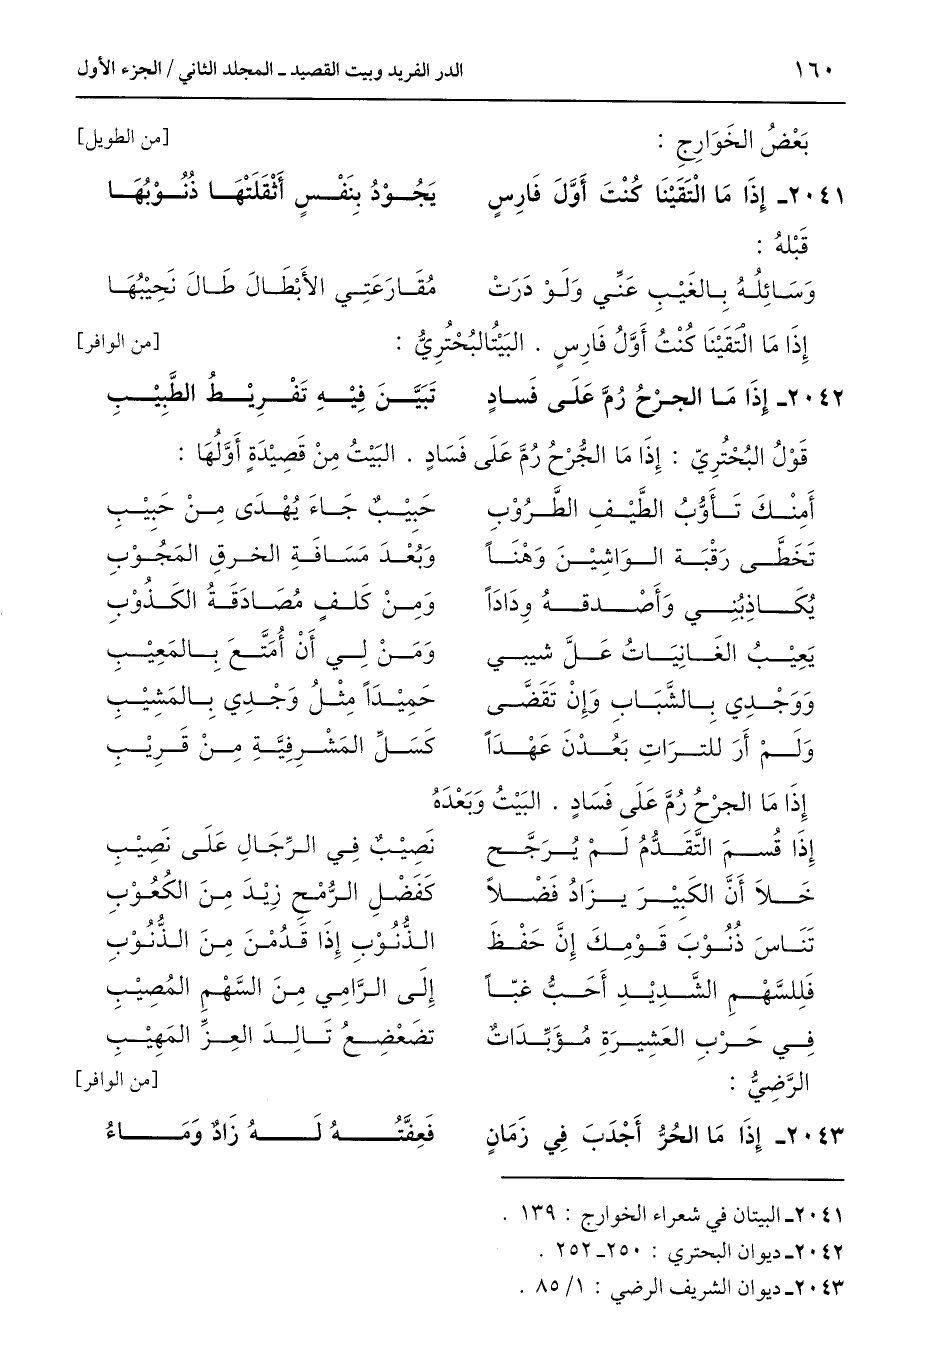 ١٦٠ الدر الفريد وبيت القصيد ـ المجلد الثاني / الجزء الأول
بَعْضُ الخَوَارِجِ : [من الطويل]
٢٠٤١ـ إِذَا مَا الْتَقَيْنَا كُنْتَ أَوَّلَ فَارِسٍ يَجُـودُ بِنَفْـسٍ أَثْقَلَتْهَـا ذُنُـوْبُهَـا
قَبْلهُ :
وَسَـائِلَهُ بِـالغَيْـبِ عَنِّـي وَلَـوْ دَرَتْ مُقَـارَعَتِـي الأَبْطَـالَ طَـالَ نَحِيْبُهَـا
إِذَا مَا الْتَقَيْنَا كُنْتُ أَوَّلُ فَارِسٍ . البَيْتُالبُحْتُرِيُّ : [من الوافر]
٢٠٤٢ـ إِذَا مَـا الجـرْحُ رُمَّ عَلَـى فَسـادٍ تَبَيَّـنَ فِيْـهِ تَفْـرِيْـطُ الطَّبِيْـبِ
قَوْلُ البُحْتُرِيّ : إِذَا مَا الجُّرْحُ رُمَّ عَلَى فَسَادٍ . البَيْتُ مِنْ قَصِيْدَةٍ أَوَّلُهَا :
أَمِنْـكَ تَـأَوُّبُ الطَّيْـفِ الطَّـرُوْبِ حَبِيْـبٌ جَـاءَ يُهْـدَى مِـنْ حَبِيْـبِ
تَخَطَّـى رَقْبَـةَ الـوَاشِيْـنَ وَهْنـاً وَبُعْـدَ مَسَـافَـةِ الخـرقِ المَجُـوْبِ
يُكَـاذِبُنِـي وَأَصْـدقـهُ وِدَاداً وَمِـنْ كَلَـفٍ مُصَـادَقَـةُ الكَـذُوْبِ
يَعِيْـبُ الغَـانِيَـاتُ عَـلَّ شَيْبـي وَمَـنْ لِـي أَنْ أُمَتَّـعَ بِـالمَعِيْـبِ
وَوَجْـدِي بِـالشَّبَـابِ وَإِنْ تَقَضَّـى حَمِيْـداً مِثْـلُ وَجْـدِي بِـالمَشِيْـبِ
وَلَـمْ أَرَ للتـرَاتِ بَعُـدْنَ عَهْـدَاً كَسَـلِّ المَشْـرِفِيَّـةِ مِـنْ قَـرِيْـبِ
إِذَا مَا الجرْحُ رُمَّ عَلَى فَسَادٍ . البَيْتُ وَبَعْدَهُ
إِذَا قُسِـمَ التَّقَـدُّمُ لَـمْ يُـرَجَّـح نَصِيْـبٌ فِـي الـرِّجَـالِ عَلَـى نَصِيْـبِ
خَـلاَ أَنَّ الكَبِيْـرَ يـزَادُ فَضْـلاً كَفَضْـلِ الـرُّمْـحِ زِيْـدَ مِـنَ الكُعُـوْبِ
تَنَـاسَ ذُنُـوْبَ قَـوْمِـكَ إِنَّ حِفْـظَ الـذُّنُـوْبِ إِذَا قَـدُمْـنَ مِـنَ الـذُّنُـوْبِ
فَلِلسَّهْـمِ الشَّـدِيْـدِ أَحَـبُّ غِبّـاً إِلَى الـرَّامِـي مِـنَ السَّهْـمِ المُصِيْـبِ
فِـي حَـرْبِ العَشِيْـرَةِ مُـؤَيِّـدَاتٌ تضَعْضِـعُ تَـالِـدَ العِـزِّ المَهِيْـبِ
الرَّضِيُّ : [من الوافر]
٢٠٤٣ـ إِذَا مَا الحُرُّ أَجْدَبَ فِي زَمَانٍ فَعِفَّتُـهُ لَـهُ زَادٌ وَمَـاءُ
٢٠٤١ـ البيتان في شعراء الخوارج : ١٣٩ .
٢٠٤٢ـ ديوان البحتري : ٢٥٠ـ ٢٥٢ .
٢٠٤٣ـ ديوان الشريف الرضي : ١/ ٨٥ .